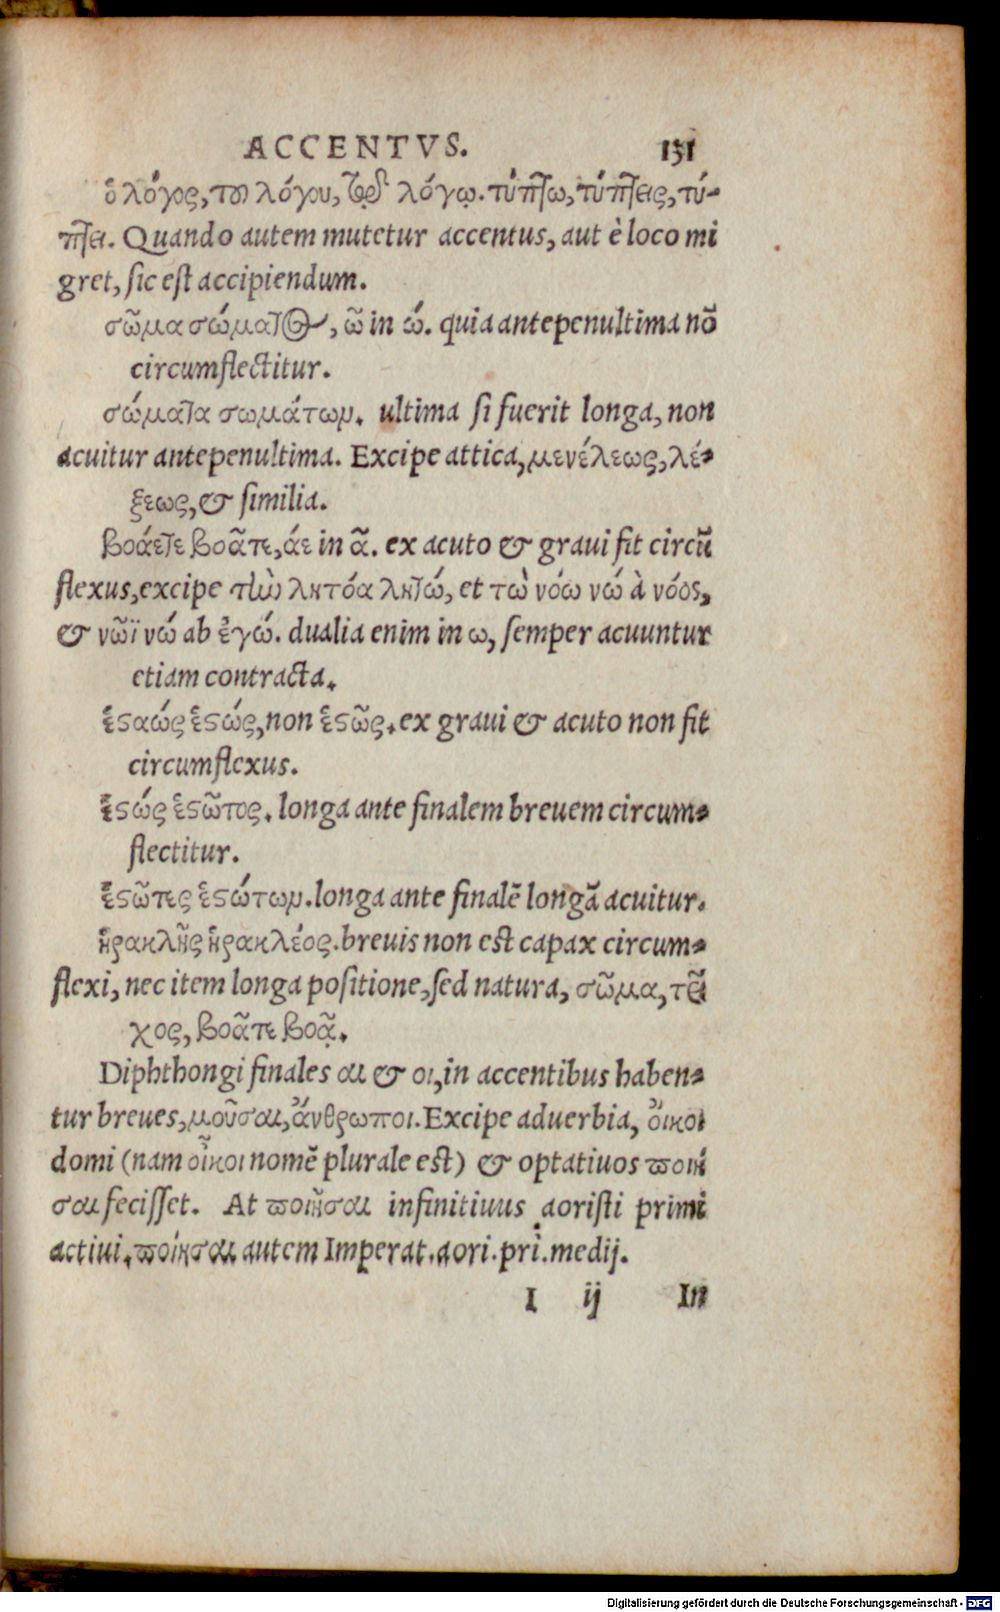 ACCENTVS. 131
ὁ λόγος, τοῦ λόγου, λόγῳ. τύπτω, τύπτεις, τύ-
πτει. Quando autem mutetur accentus, aut è loco mi
gret, sic est accipiendum.
σῶμα σώματος, ῶ in ώ. quia antepenultima nõ
circumflectitur.
σώματα σωμάτων. ultima si fuerit longa, non
acuitur antepenultima. Excipe attica, μενέλεως, λέ-
ξεως, & similia.
βοάετε βοᾶτε, άε in ᾶ. ex acuto & graui fit circũ
flexus, excipe τὼ λητόα λητώ, et τὼ νόω νώ à νόος,
& νῶϊ νώ ab ἐγώ. dualia enim in ω, semper acuuntur
etiam contracta.
ἑσαώς ἑστώς, non ἑστῶς. ex graui & acuto non fit
circumflexus.
ἑστώς ἑστῶτος. longa ante finalem breuem circum-
flectitur.
ἑστῶτες ἑστώτων. longa ante finalẽ longã acuitur.
ἡρακλῆς ἡρακλέος. breuis non est capax circum-
flexi, nec item longa positione, sed natura, σῶμα, τεῖ
χος, βοᾶτε βοᾷ.
Diphthongi finales αι & οι, in accentibus haben-
tur breues, μοῦσαι, ἄνθρωποι. Excipe aduerbia, οἴκοι
domi (nam οἶκοι nomẽ plurale est) & optatiuos ποιή
σαι fecisset. At ποιῆσαι infinitiuus aoristi primi
actiui. ποίησαι autem Imperat. aori. pri. medij.
I ij In
Digitalisierung gefördert durch die Deutsche Forschungsgemeinschaft - DFG